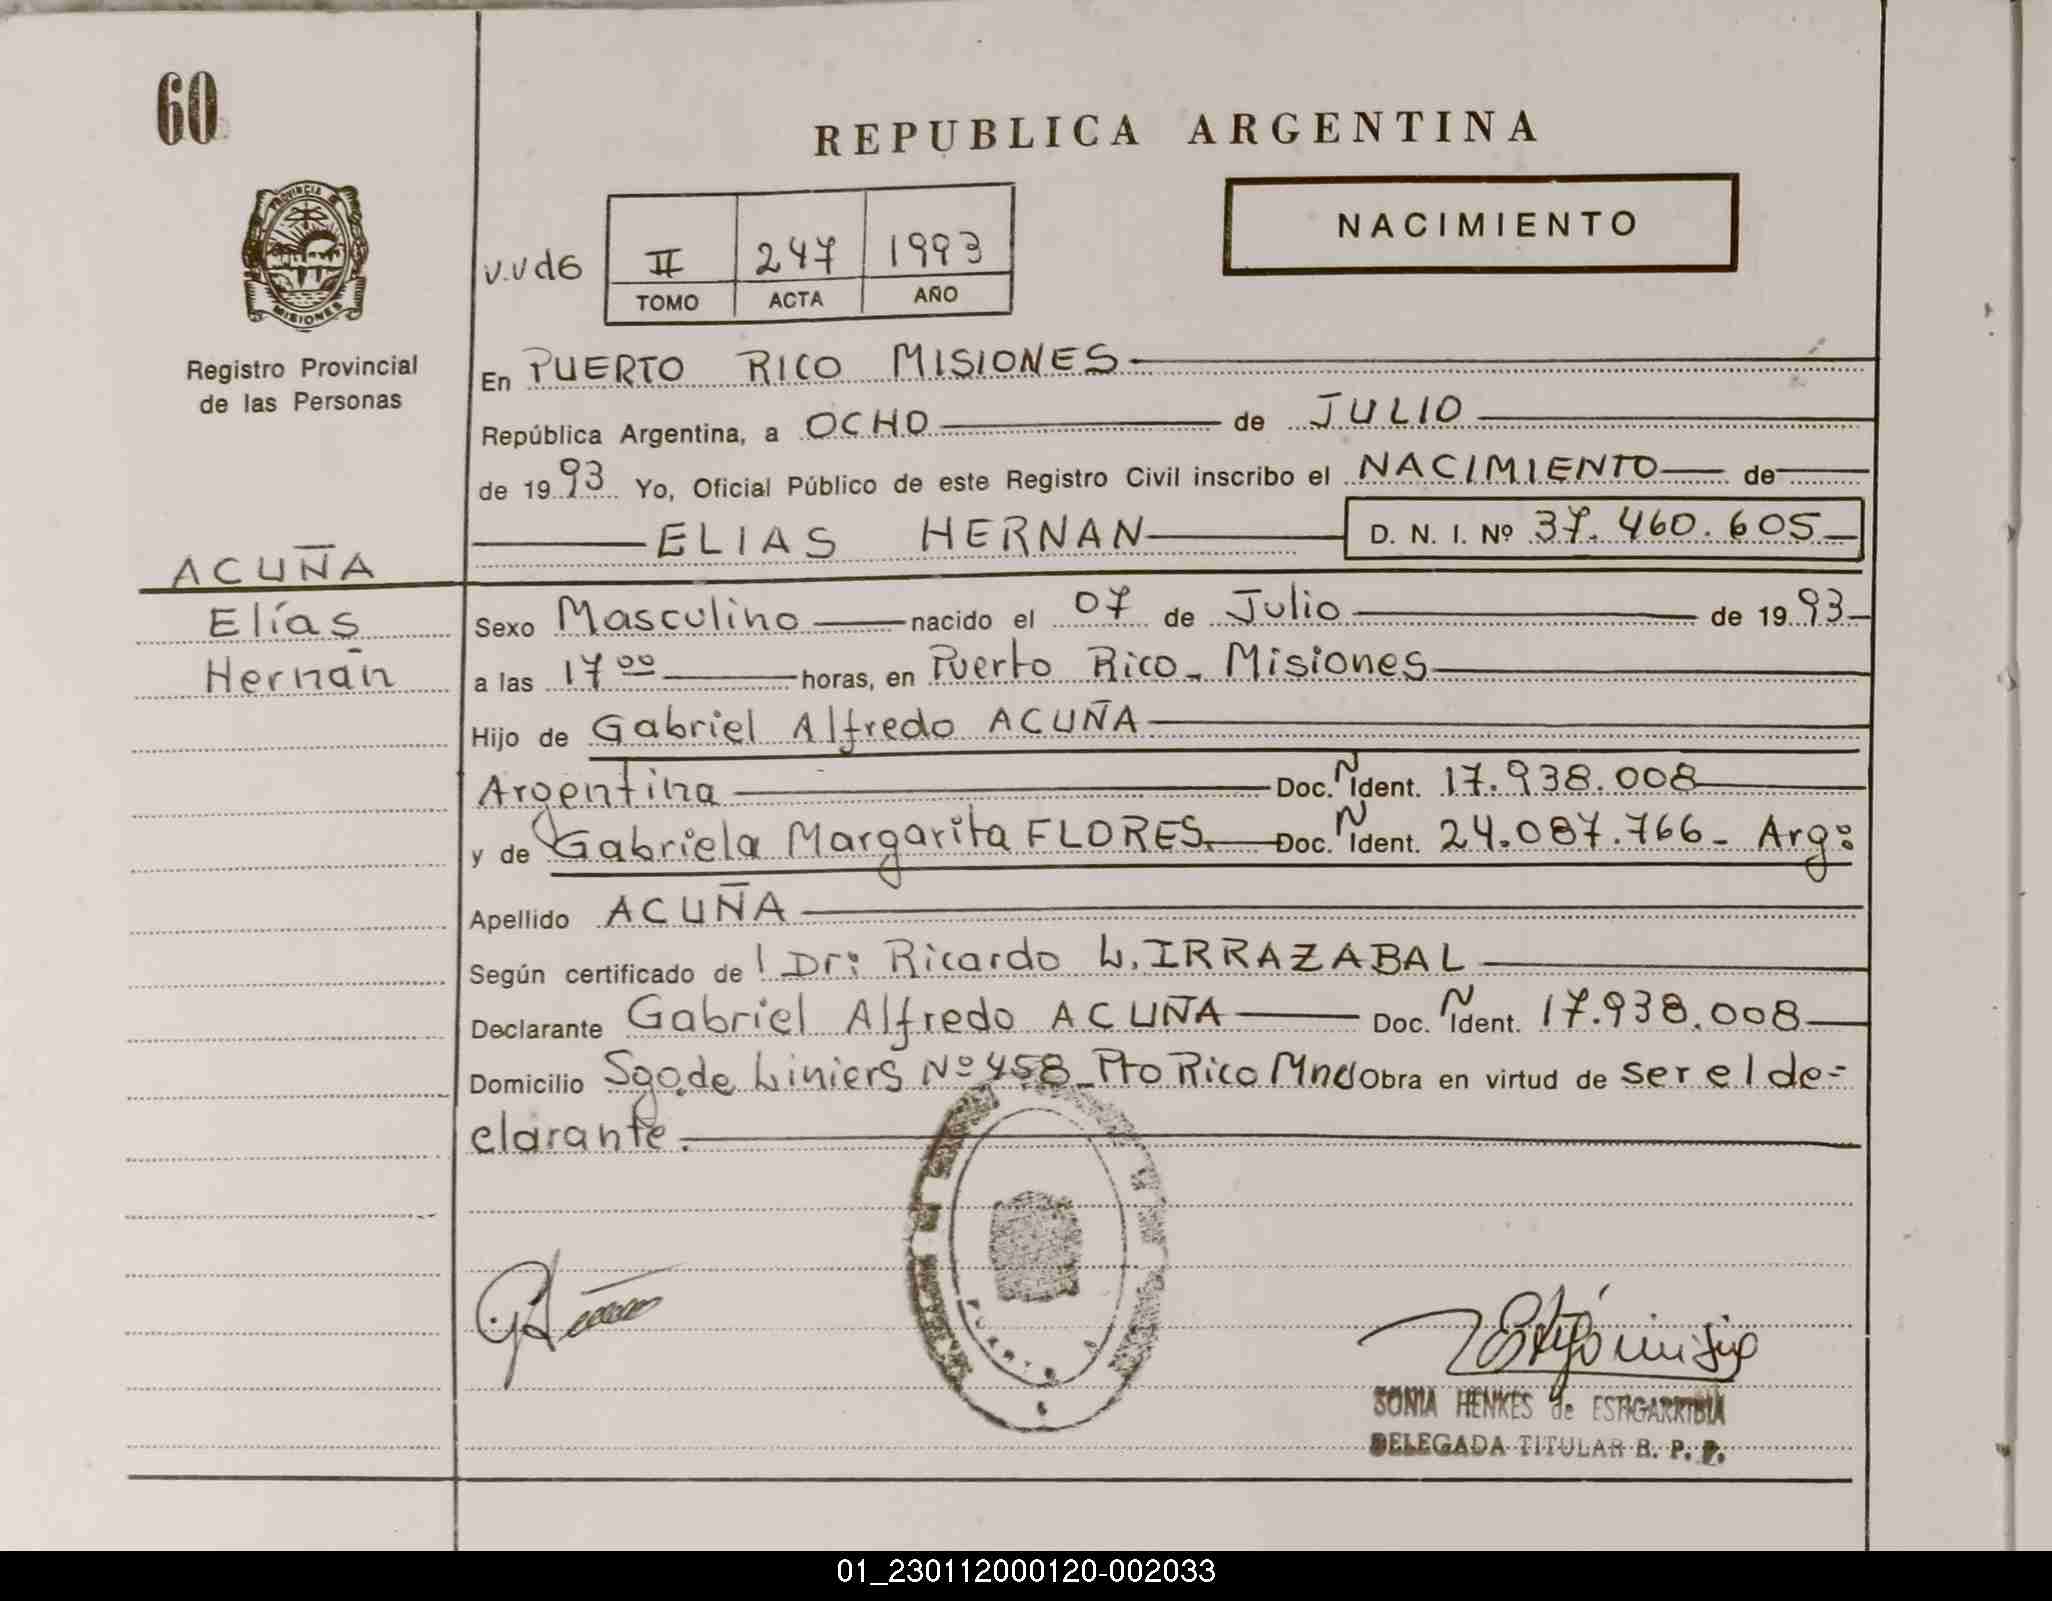 60
REPUBLICA ARGENTINA
PROVINCIA DE
MISIONES
NACIMIENTO
v.v d6 II 247 1993
TOMO ACTA AÑO
Registro Provincial
de las Personas
En PUERTO RICO MISIONES
República Argentina, a OCHO de JULIO
de 1993 Yo, Oficial Público de este Registro Civil inscribo el NACIMIENTO de
ELIAS HERNAN D. N. I. Nº 37.460.605
ACUÑA
Elías
Hernán
Sexo Masculino nacido el 07 de Julio de 1993
a las 17 00 horas, en Puerto Rico - Misiones
Hijo de Gabriel Alfredo ACUÑA
Argentina Doc. Ñ Ident. 17.938.008
y de Gabriela Margarita FLORES. Doc. Ñ Ident. 24.087.766 - Arg:
Apellido ACUÑA
Según certificado de l Dr: Ricardo L. IRRAZABAL
Declarante Gabriel Alfredo ACUÑA Doc. Ñ Ident. 17.938.008
Domicilio Sgo. de Liniers Nº 458 - Pto Rico Mnes Obra en virtud de ser el de=
clarante.
PUERTO
SONIA HENKES de ESTIGARRIBIA
DELEGADA TITULAR R. P. P.
01_230112000120-002033